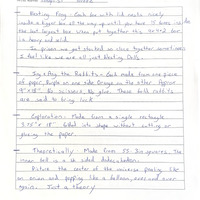 Nesting Frog : Each box with lid rests nicely
inside a bigger box all the way up until you have
the last largest box. When put together this
is heavy and solid.
In prison we get stacked so close together sometimes
I feel like we are all just Nesting Dolls.
Joy & Bay the Rabbits : Each made from one piece
of paper, Purple on one side Orange on the other. Approx
4" x 8". No scissors, No glue. These folded rabbits
are said to bring luck
Explanation : Made from a single rectangle
3.75" x 18". folded into shape without cutting or
gluing the paper.
Theoretically : Made from 55
inner ball is a
Picture the center of the universe growing like
an onion and popping like a balloon, over and over
again. Just a theory